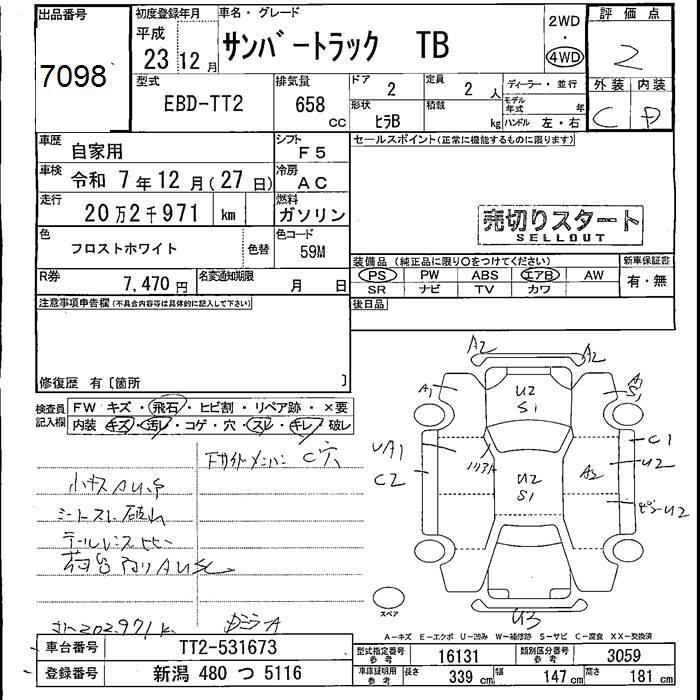 出品番号
7098
初度登録年月
平成
23 12 月
車名・グレード
サンバートラック TB
2WD
・
4WD
評価点
2
外装 内装
C D
型式
EBD-TT2
排気量
658
CC
ドア
2
定員
2 人
形状
ヒラB
積載
kg
ディーラー・並行
モデル年式 年
ハンドル 左・右
車歴
自家用
シフト
F5
車検
令和 7 年 12 月 ( 27 日)
冷房
AC
走行
20 万 2 千 971 km
燃料
ガソリン
色
フロストホワイト
色替
色コード
59M
R券
7,470 円
名変通知期限
月 日
セールスポイント(正常に機能するものに限ります)
売切りスタート
SELLOUT
装備品(純正品に限り○をつけてください)
PS PW ABS エアB AW
SR ナビ TV カワ
新車保証書
有・無
後日品
注意事項申告欄(不具合内容等は具体的に記入して下さい)
修復歴 有〔箇所 〕
検査員記入欄
FW キズ・飛石・ヒビ割・リペア跡・×要
内装 キズ・汚レ・コゲ・穴・スレ・キレ・破レ
Fサイドメンバー C穴
小キズAU
シートスレ 破れ
荷台
202.971k
A2
A2
A1
U2
S1
A1
S1
UA1
C2
U2
S1
A2
C1
U2
U2
U3
スペア
A-キズ E-エクボ U-凹み W-補修跡 S-サビ C-腐食 XX-交換済
車台番号
TT2-531673
登録番号
新潟 480 つ 5116
型式指定番号
参考
16131
類別区分番号
参考
3059
車庫証明用
参考
長さ 339 cm 幅 147 cm 高さ 181 cm